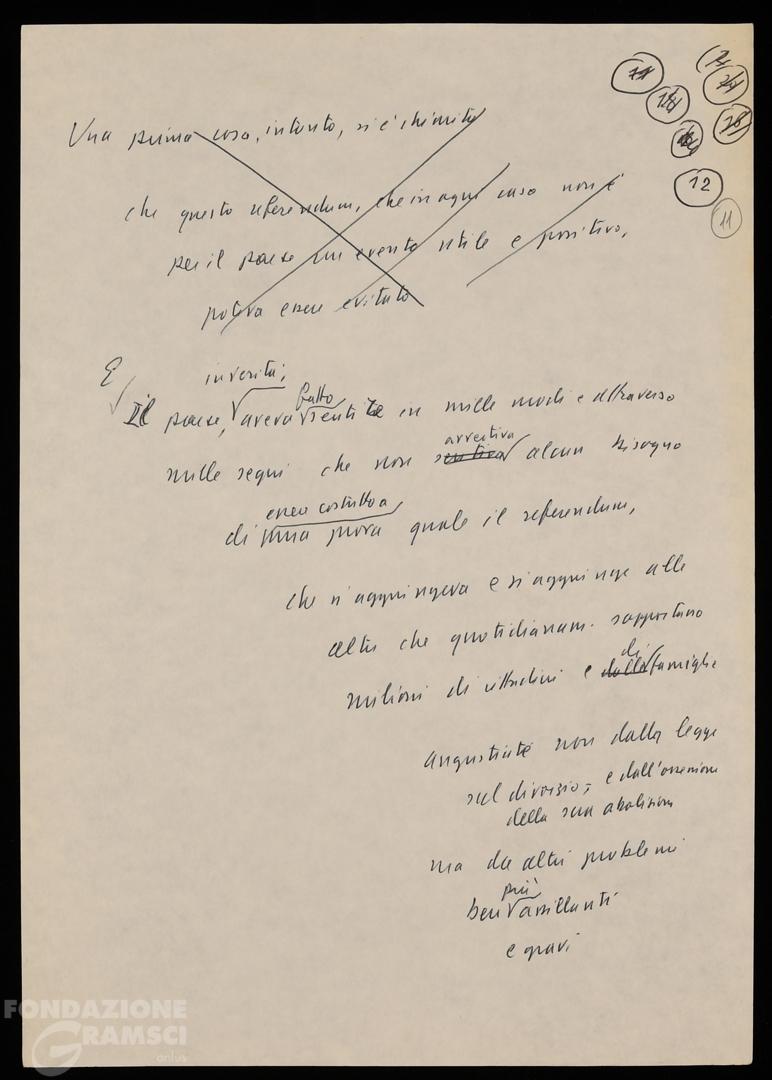 11
12
11
Una prima cosa, intanto, si è chiarita
che questo referendum, che in ogni caso non è
per il paese un evento utile e positivo,
poteva essere evitato
E
in verità,
Il paese, aveva sentito in mille modi e attraverso
fatto
mille segni che non sentiva alcun bisogno
avvertiva
di una prova quale il referendum,
che s'aggiungeva e si aggiunge alle
altre che quotidianam. sopportano
milioni di cittadini e dalle famiglie
di
angustiate non dalla legge
sul divorzio, e dall'ossessione
della sua abolizione
ma da altri problemi
ben più assillanti
e gravi
FONDAZIONE
GRAMSCI
onlus